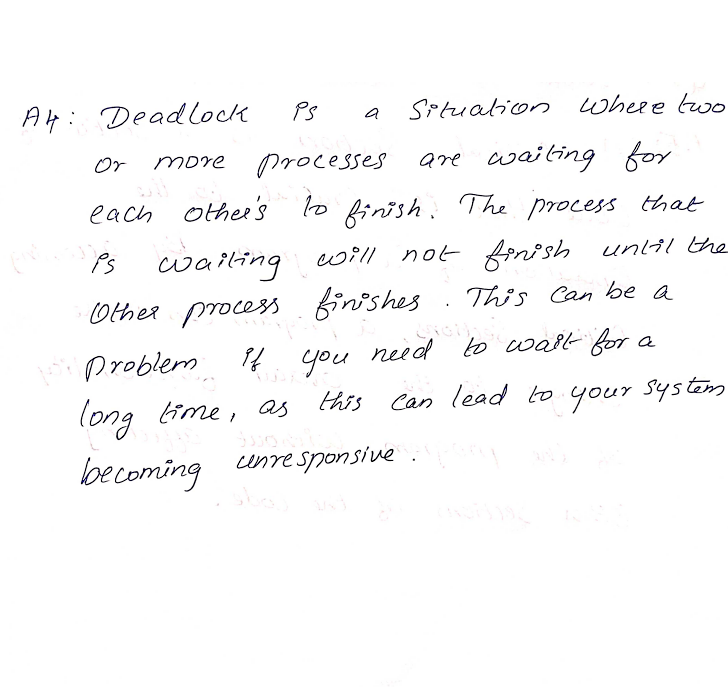 A4: Deadlock is a situation where two
or more processes are waiting for
each other's to finish. The process that
is waiting will not finish until the
other process finishes. This can be a
problem if you need to wait for a
long time, as this can lead to your system
becoming unresponsive.